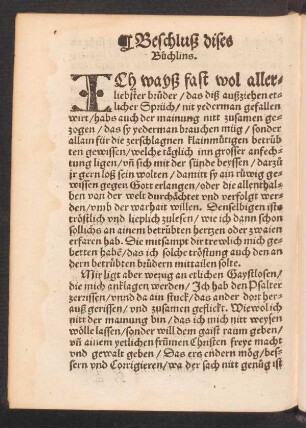 ¶ Beschluß dises
Büchlins.
ICh wayß fast wol aller-
liebster brüder / das diß außziehen et-
licher Sprüch / nit yederman gefallen
wirt / habs auch der mainung nitt zusamen ge-
zogen / das sy yederman brauchen müg / sonder
allain für die zerschlagnen klainmütigen betrüb
ten gewissen / welche täglich inn grosser anfech-
tung ligen / vñ sich mit der sünde beyssen / darzü
jr gern loß sein wolten / damitt sy ain rüwig ge-
wissen gegen Gott erlangen / oder die allenthal-
ben von der welt durchächtet vnd verfolgt wer-
den / vmb der warhait willen. Denselbigen ists
tröstlich vnd lieplich zulesen / wie ich dann schon
sollichs an ainem betrübten hertzen oder zwaien
erfaren hab. Die mitsampt dir trewlich mich ge-
betten habẽ / das ich solche tröstung auch den an
dern betrübten brüdern mittailen solte.
Mir ligt aber wenig an etlichen Gaystlosen /
die mich anklagen werden / Ich hab den Psalter
zerrissen / vnnd da ain stuck / das ander dort her-
auß gerissen / vnd zusamen geflickt. Wiewol ich
nitt der mainung bin / das ich mich nitt weysen
wölle lassen / sonder will dem gaist raum geben /
vñ ainem yetlichen frümen Christen freye macht
vnd gewalt geben / Das ers endern mög / bes-
sern vnd Corrigieren / wa der sach nitt genüg ist